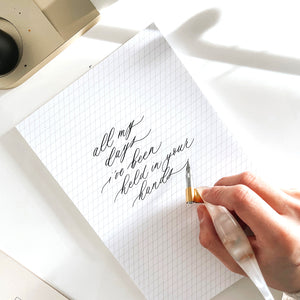 all my
days
i've been
held in your
hands